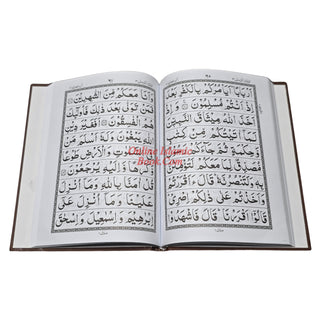 اَرْبَابًا اَيَاْمُرُكُمْ بِالْكُفْرِ بَعْدَ
اِذْ اَنْتُمْ مُّسْلِمُوْنَ وَ اِذْ
اَخَذَ اللّٰهُ مِيْثَاقَ النَّبِيّٖنَ
لَمَاۤ اٰتَيْتُكُمْ مِّنْ كِتٰبٍ
وَّحِكْمَةٍ ثُمَّ جَآءَكُمْ رَسُوْلٌ
مُّصَدِّقٌ لِّمَا مَعَكُمْ لَتُؤْمِنُنَّ
بِهٖ وَلَتَنْصُرُنَّهٗ قَالَ ءَاَقْرَرْتُمْ
وَاَخَذْتُمْ عَلٰى ذٰلِكُمْ اِصْرِيْ
قَالُوْۤا اَقْرَرْنَا قَالَ فَاشْهَدُوْا
وَاَنَا مَعَكُمْ مِّنَ الشّٰهِدِيْنَ
فَمَنْ تَوَلّٰى بَعْدَ ذٰلِكَ فَاُولٰٓئِكَ
هُمُ الْفٰسِقُوْنَ اَفَغَيْرَ دِيْنِ
اللّٰهِ يَبْغُوْنَ وَلَهٗۤ اَسْلَمَ مَنْ
فِي السَّمٰوٰتِ وَالْاَرْضِ طَوْعًا
وَّكَرْهًا وَّاِلَيْهِ يُرْجَعُوْنَ
قُلْ اٰمَنَّا بِاللّٰهِ وَمَاۤ اُنْزِلَ
عَلَيْنَا وَمَاۤ اُنْزِلَ عَلٰۤى
اِبْرٰهِيْمَ وَاِسْمٰعِيْلَ وَاِسْحٰقَ
Online Islamic
Book.Com